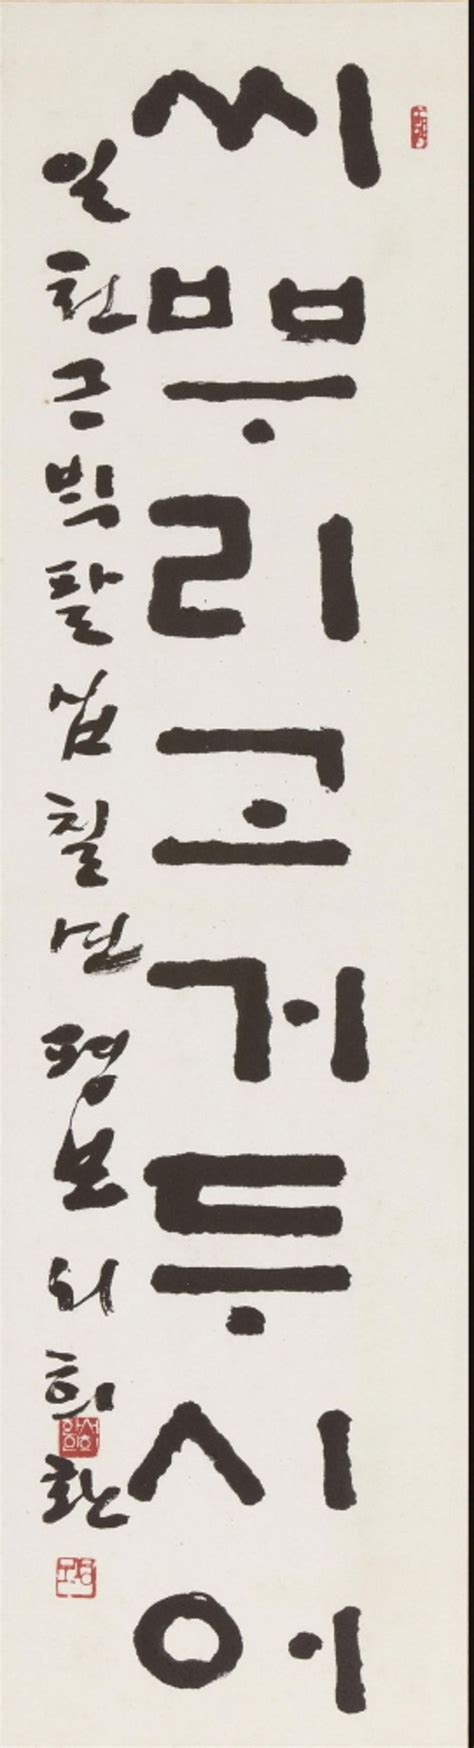 씨뿌리고거두시어
일천구백팔십칠년평보서희환